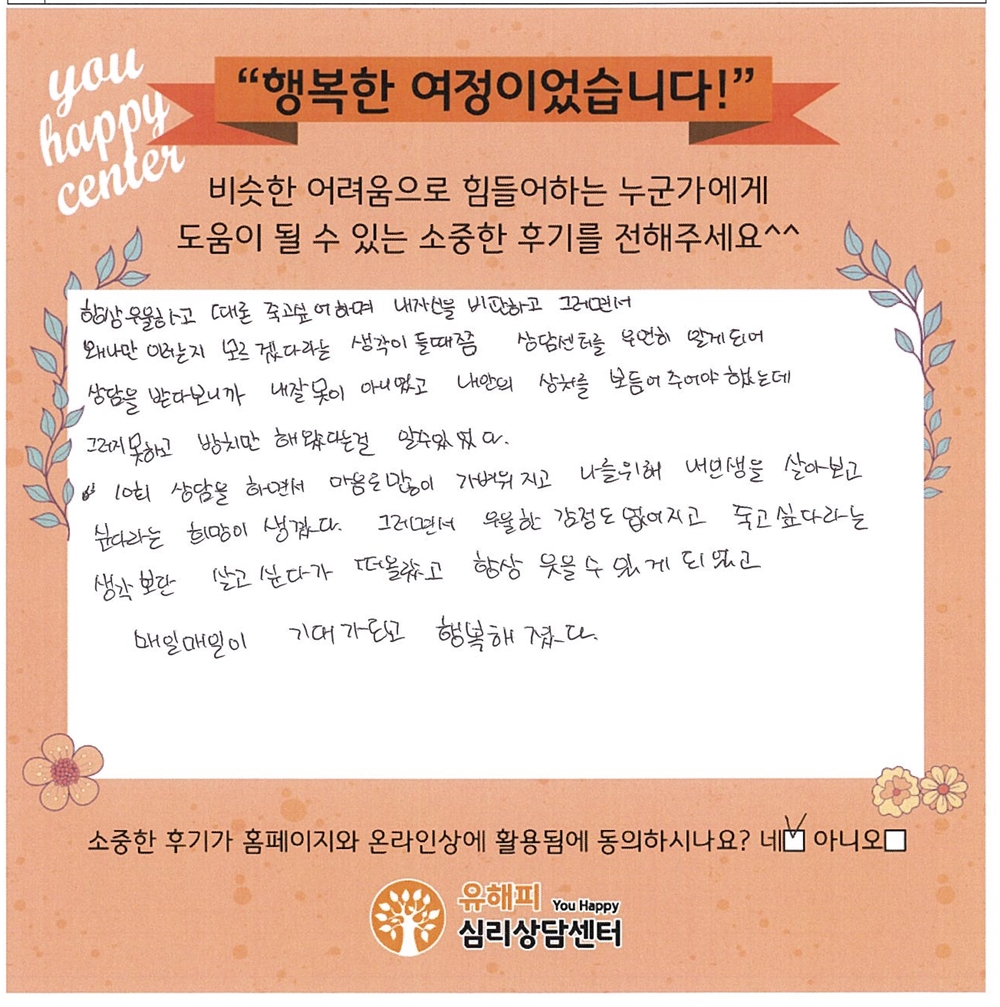 you
happy
center
“행복한 여정이었습니다!”
비슷한 어려움으로 힘들어하는 누군가에게
도움이 될 수 있는 소중한 후기를 전해주세요^^
항상 우울하고 때론 죽고싶어하며 내자신을 비판하고 그러면서
왜나만 이러는지 모르겠다라는 생각이 들때쯤 상담센터를 우연히 알게되어
상담을 받다보니까 내잘못이 아니였고 내안의 상처를 보듬어 주어야 했는데
그러지못하고 방치만 해왔다는걸 알수있었다.
10회 상담을 하면서 마음도 가벼워지고 나를위해 내인생을 살아보고
싶다라는 희망이 생겼다. 그러면서 우울한 감정도 없어지고 죽고싶다라는
생각보단 살고싶다가 떠올랐고 항상 웃을수 있게 되었고
매일매일이 기대가되고 행복해졌다.
소중한 후기가 홈페이지와 온라인상에 활용됨에 동의하시나요? 네 아니오
유해피 You Happy
심리상담센터